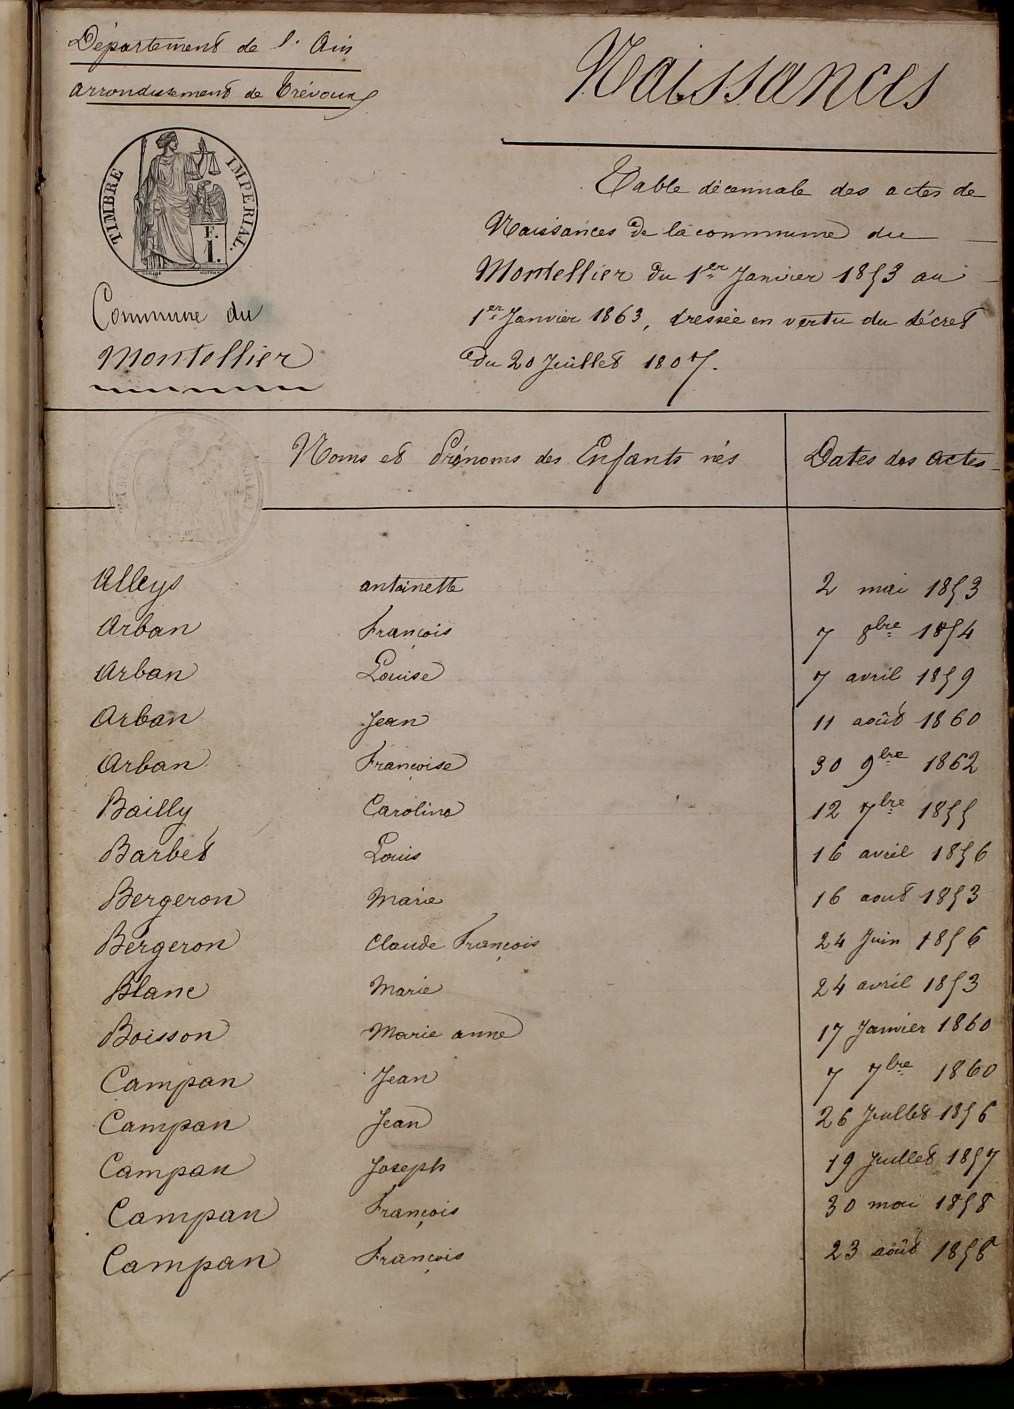 Département de l'Ain
arrondissement de Trévoux
Naissances
TIMBRE IMPÉRIAL.
F.
I.
Commune du
Montellier
Table décennale des actes de
Naissances de la commune du
Montellier du 1er Janvier 1853 au
1er Janvier 1863, dressée en vertu du décret
du 20 Juillet 1807.
Noms et Prénoms des Enfants nés Dates des actes
Alleys antoinette 2 mai 1853
Arban François 7 8bre 1854
Arban Louise 7 avril 1859
Arban Jean 11 août 1860
Arban Françoise 30 9bre 1862
Bailly Caroline 12 7bre 1855
Barbet Louis 16 avril 1856
Bergeron Marie 16 aout 1853
Bergeron Claude François 24 Juin 1856
Blanc Marie 24 avril 1853
Boisson Marie anne 17 Janvier 1860
Campan Jean 7 7bre 1860
Campan Jean 26 Juillet 1856
Campan Joseph 19 Juillet 1857
Campan François 30 mai 1858
Campan François 23 août 1858